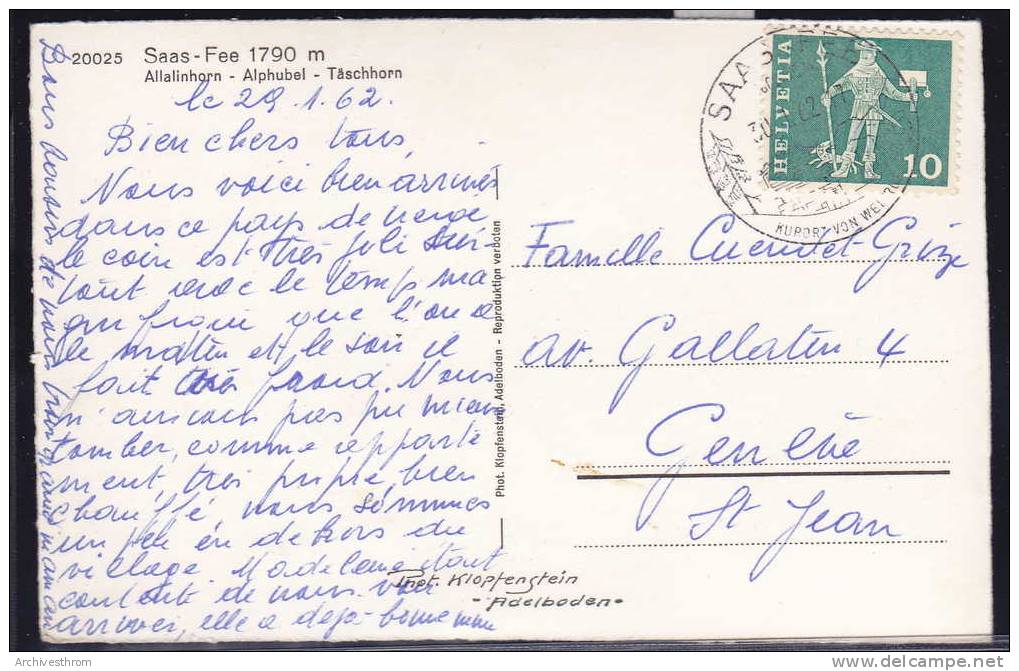 20025 Saas-Fee 1790 m
Allalinhorn - Alphubel - Täschhorn
le 29.1.62.
Bien chers tous,
Nous voici bien arrivés
dans ce pays de neige
le coin est très joli sur-
tout avec le temps ma
gnifique que l'on a
le matin et le soir il
fait très froid. Nous
n'aurions pas pu mieux
tomber, comme apparte
ment, très propre, bien
chauffé, nous sommes
un peu en dehors du
village. Madeleine était
contente de nous voir
arriver, elle a déjà bonne mine
Bons baisers de nous
grand maman
Phot. Klopfenstein, Adelboden - Reproduktion verboten
Phot. Klopfenstein
- Adelboden -
SAAS-FEE
KURORT VON WEL
HELVETIA
10
Famille Cuendet-Grize
av. Gallatin 4
Genève
St Jean
Archivesthrom
delcampe.net